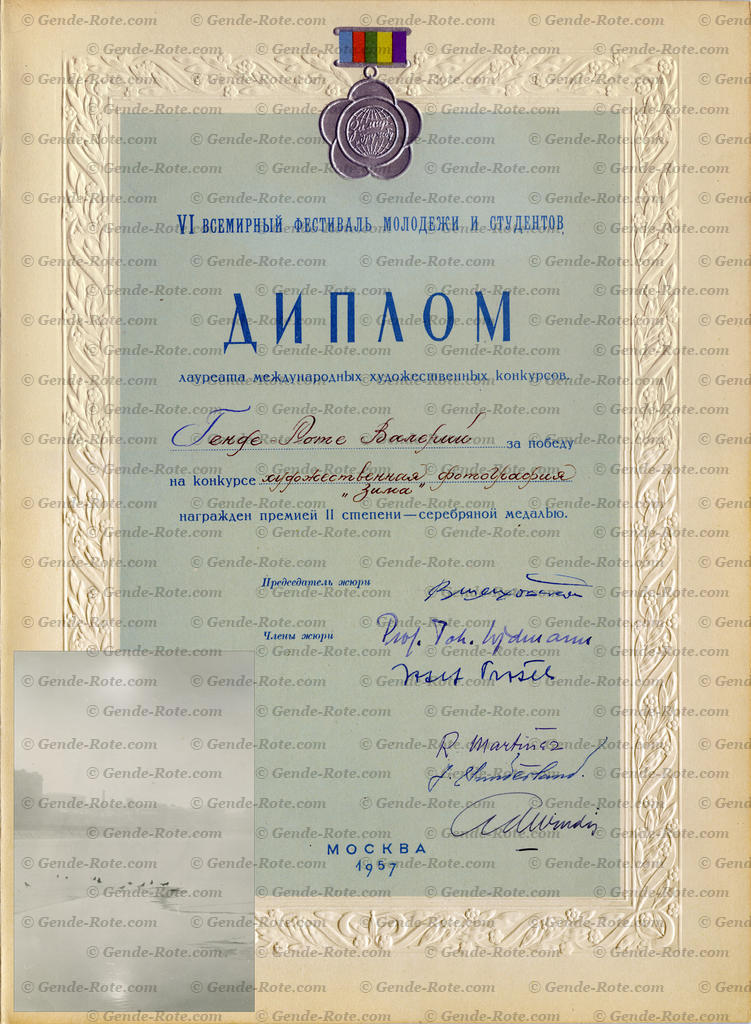 За мир и дружбу
VI ВСЕМИРНЫЙ ФЕСТИВАЛЬ МОЛОДЕЖИ И СТУДЕНТОВ
ДИПЛОМ
лауреата международных художественных конкурсов.
Генде-Роте Валерий за победу
на конкурсе художественная фотография
"Зима"
награжден премией II степени—серебряной медалью.
Председатель жюри
Члены жюри Prof. Joh. Widmann
R. Martinez
J. Sunderland.
МОСКВА
1957
© Gende-Rote.com